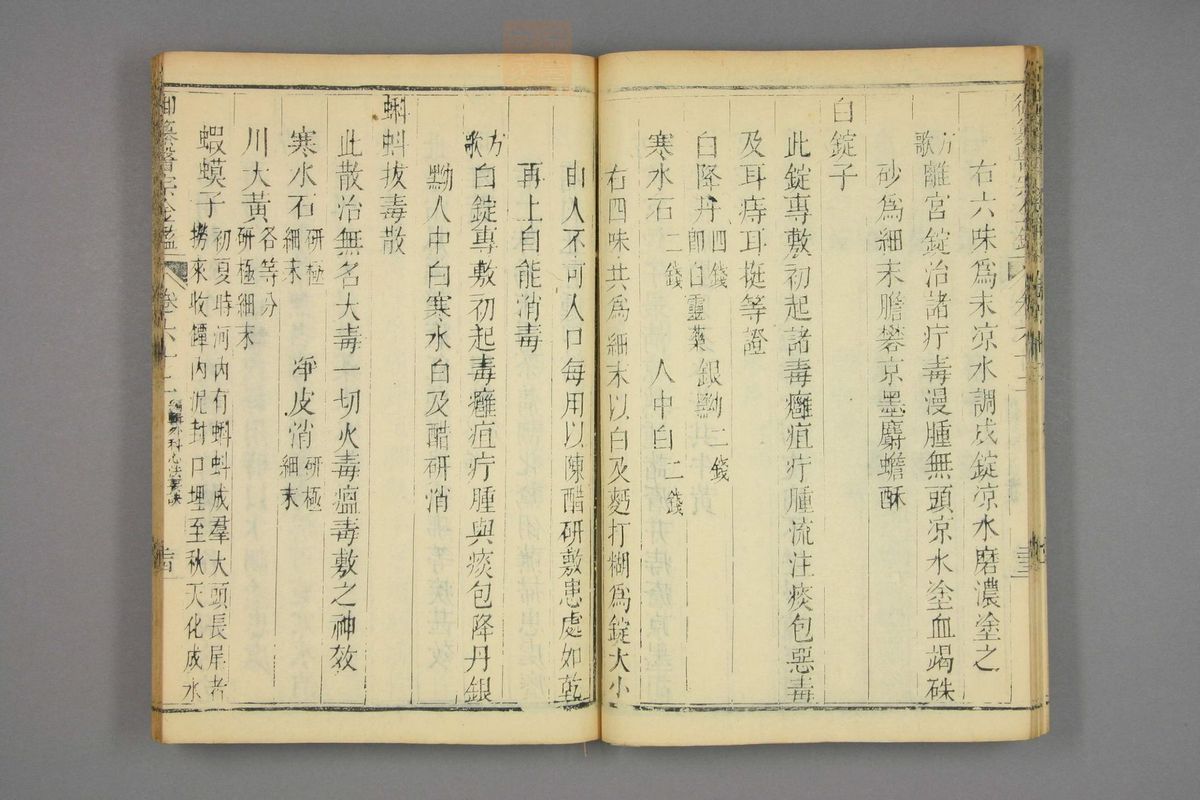 右六味爲末凉水調成錠凉水磨濃塗之
方歌離宮錠治諸疔毒漫腫無頭凉水塗血竭硃
砂爲細末膽礬京墨麝蟾酥
白錠子
此錠專敷初起諸毒癰疽疔腫流注痰包惡毒
及耳痔耳挺等證
白降丹四錢即白靈藥 銀黝二錢
寒水石二錢 人中白二錢
右四味共爲細末以白及麪打糊爲錠大小
由人不可入口每用以陳醋研敷患處如乾
再上自能消毒
方歌白錠專敷初起毒癰疽疔腫與痰包降丹銀
黝人中白寒水白及醋研消
蝌蚪拔毒散
此散治無名大毒一切火毒瘟毒敷之神效
寒水石研極細末 淨皮消研極細末
川大黃各等分研極細末
蝦蟆子初夏時河内有蝌蚪成羣大頭長尾者
撈來收罈内泥封口埋至秋天化成水
御纂醫宗金鑑 卷六十二 編輯外科心法要訣